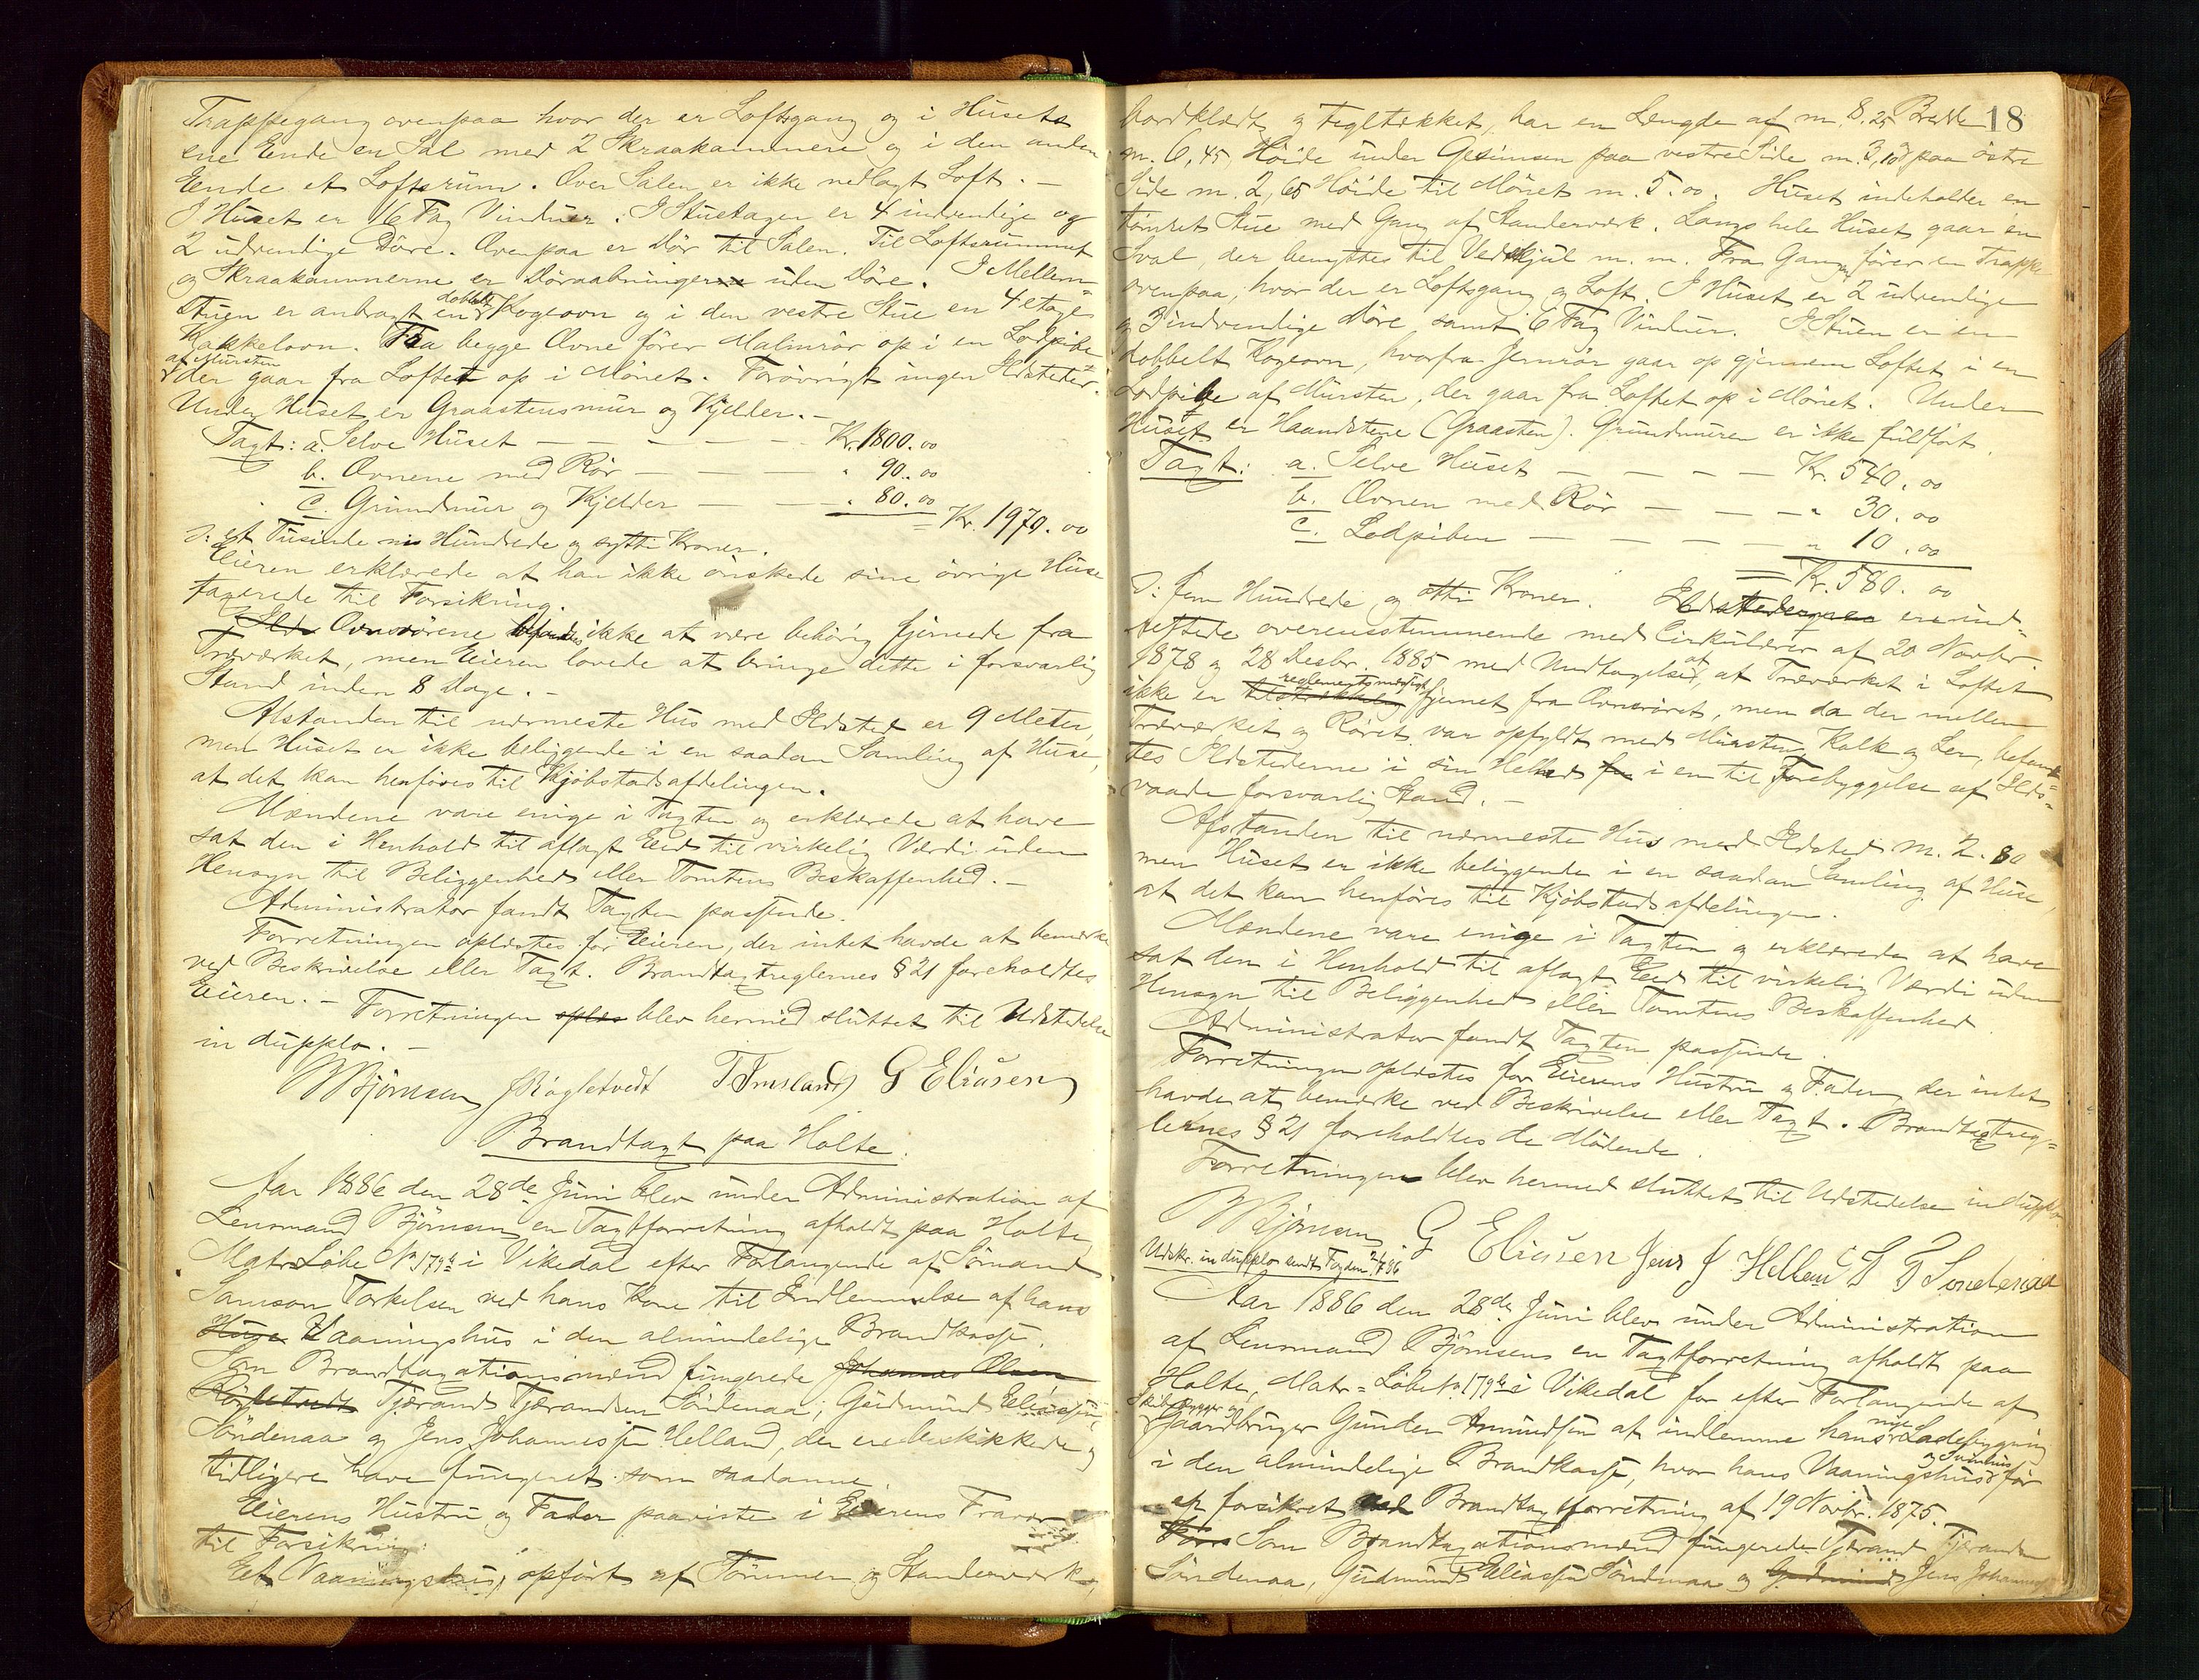 Trappegang ovenpaa hvor der er Loftsgang og i Husets
ene Ende en Sal med 2 Skraakammere og i den anden
Ende et Loftsrum. Over Salen er ikke nedlagt Loft. —
I Huset er 16 Fag Vinduer. I Stuetagen er 4 indvendige og
2 udvendige Döre. Ovenpaa er Dör til Salen. Til Loftsrummet
og Skraakammerne er Döraabninger uden Döre. I Mellem-
stuen er anbragt en dobbelt Kogeovn og i den vestre Stue en 4 Etages
Kakkelovn. Fra begge Ovne förer Malmrör op i en Lodpibe
af Mursten der gaar fra Loftet op i Mönet. Forövrigt ingen Ildsteder.
Under Huset er Graastensmur og Kjelder. —
Taxt: a. Selve Huset — — — — — Kr. 1800.00
b. Ovnene med Rör — — — " 90.00
c. Grundmur og Kjelder — — " 80.00
= Kr. 1970.00
ɔ: et Tusinde ni Hundrede og sytti Kroner.
Eieren erklærede at han ikke önskede sine övrige Huse
taxerede til Forsikring.
Ilds Ovnsrörene befandtes ikke at være behörig fjernede fra
Træværket, men Eieren lovede at bringe dette i forsvarlig
Stand inden 8 Dage. —
Afstanden til nærmeste Hus med Ildsted er 9 Meter,
men Huset er ikke beliggende i en saadan Samling af Huse,
at det kan henföres til Kjöbstadsafdelingen.
Mændene vare enige i Taxten og erklærede at have
sat den i Henhold til aflagt Eed til virkelig Værdi uden
Hensyn til Beliggenhed eller Tomtens Beskaffenhed. —
Administrator fandt Taxten passende.
Forretningen oplæstes for Eieren, der intet havde at bemærke
ved Beskrivelse eller Taxt. Brandtaxtreglernes § 21 foreholdtes
Eieren. — Forretningen oplæs blev hermed sluttet til Udstedelse
in dupplo. —
W Björnsen J Rögletvedt T Imsland G Eliasen
Brandtaxt paa Holte.
Aar 1886 den 28de Juni blev under Administration af
Lensmand Björnsen en Taxtforretning afholdt paa Holte
Matr. Löbe No 179 i Vikedal efter Forlangende af Sömand
Samson Torkelsen ved hans Kone til Indlemmelse af hans
Huse Vaaningshus i den almindelige Brandkasse.
Som Brandtaxationsmænd fungerede Johannes Olsen
Rögletvedt Tjærand Tjærandsen Söndenaa, Gudmund Eliassen
Söndenaa og Jens Johannessen Helland, der ere beskikkede og
tidligere have fungeret som saadanne.
Eierens Hustru og Fader paaviste i Eierens Fravær
til Forsikring:
Eet Vaaningshus, opfört af Tömmer og Standerværk,
18
bordklædt og tegltækket, har en Længde af m. 8.25 Bredde
m. 6,45, Höide under Gesimsen paa vestre Side m. 3,10 paa östre
Side m. 2,65 Höide til Mönet m. 5.00. Huset indeholder en
tömret Stue med Gang af Standerværk. Langs hele Huset gaar en
Sval, der benyttes til Vedskjul m. m. Fra Gangen förer en Trappe
ovenpaa, hvor der er Loftsgang og Loft. I Huset er 2 udvendige
og 3 indvendige Döre, samt 6 Fag Vinduer. I Stuen er en
dobbelt Kogeovn, hvorfra Jernrör gaar op gjennem Loftet i en
Lodpibe af Mursten, der gaar fra Loftet op i Mönet. Under
Huset er Haandstene (Graasten). Grundmuren er ikke fuldfört.
Taxt: a. Selve Huset — — — — Kr. 540.00
b. Ovnen med Rör — — — " 30.00
c. Lodpiben — — — — " 10.00
Kr. 580.00
ɔ: fem Hundrede og otti Kroner. Ildstederne ere ind-
rettede overensstemmende med Cirkulærer af 20 Novbr.
1878 og 28 Desbr. 1885 med Undtagelse af, at Træværket i Loftet
ikke er tilstrækkelig reglementsmæssigt fjernet fra Ovnsröret, men da der mellem
Træværket og Röret var opfyldt med Mursten, Kalk og Ler, befand-
tes Ildstederne i sin Helhed for i en til Forebyggelse af Ilds-
vaade forsvarlig Stand. —
Afstanden til nærmeste Hus med Ildsted m. 2.80
men Huset er ikke beliggende i en saadan Samling af Huse,
at det kan henföres til Kjöbstadsafdelingen.
Mændene vare enige i Taxten og erklærede at have
sat den i Henhold til aflagt Eed til virkelig Værdi uden
Hensyn til Beliggenhed eller Tomtens Beskaffenhed.
Administrator fandt Taxten passende.
Forretningen oplæstes for Eierens Hustru og Fader, der intet
havde at bemærke ved Beskrivelse eller Taxt. Brandtaxtreg-
lernes § 21 foreholdtes de Mödende.
Forretningen blev hermed sluttet til Udstedelse in dupplo
W Björnsen G Eliasen Jens J Helland T T Söndenaa
Udskr. in dupplo sendt Fogden 2/7 86
Aar 1886 den 28de Juni blev under Administration
af Lensmand Björnsens en Taxtforretning afholdt paa
Holte, Matr. = Löbe No 179 i Vikedal for efter Forlangende af
Skibsbygger og Gaardbruger Gunder Amundsen at indlemme hans nye Ladebygning
i den almindelige Brandkasse, hvor hans Vaaningshus og Ildhus för
er forsikret ved Brandtaxtforretning af 19 Novbr. 1875.
Som Brandtaxationsmænd fungerede Tjærand Tjærandsen
Söndenaa, Gudmund Eliassen Söndenaa og Gudmund Jens Johannes